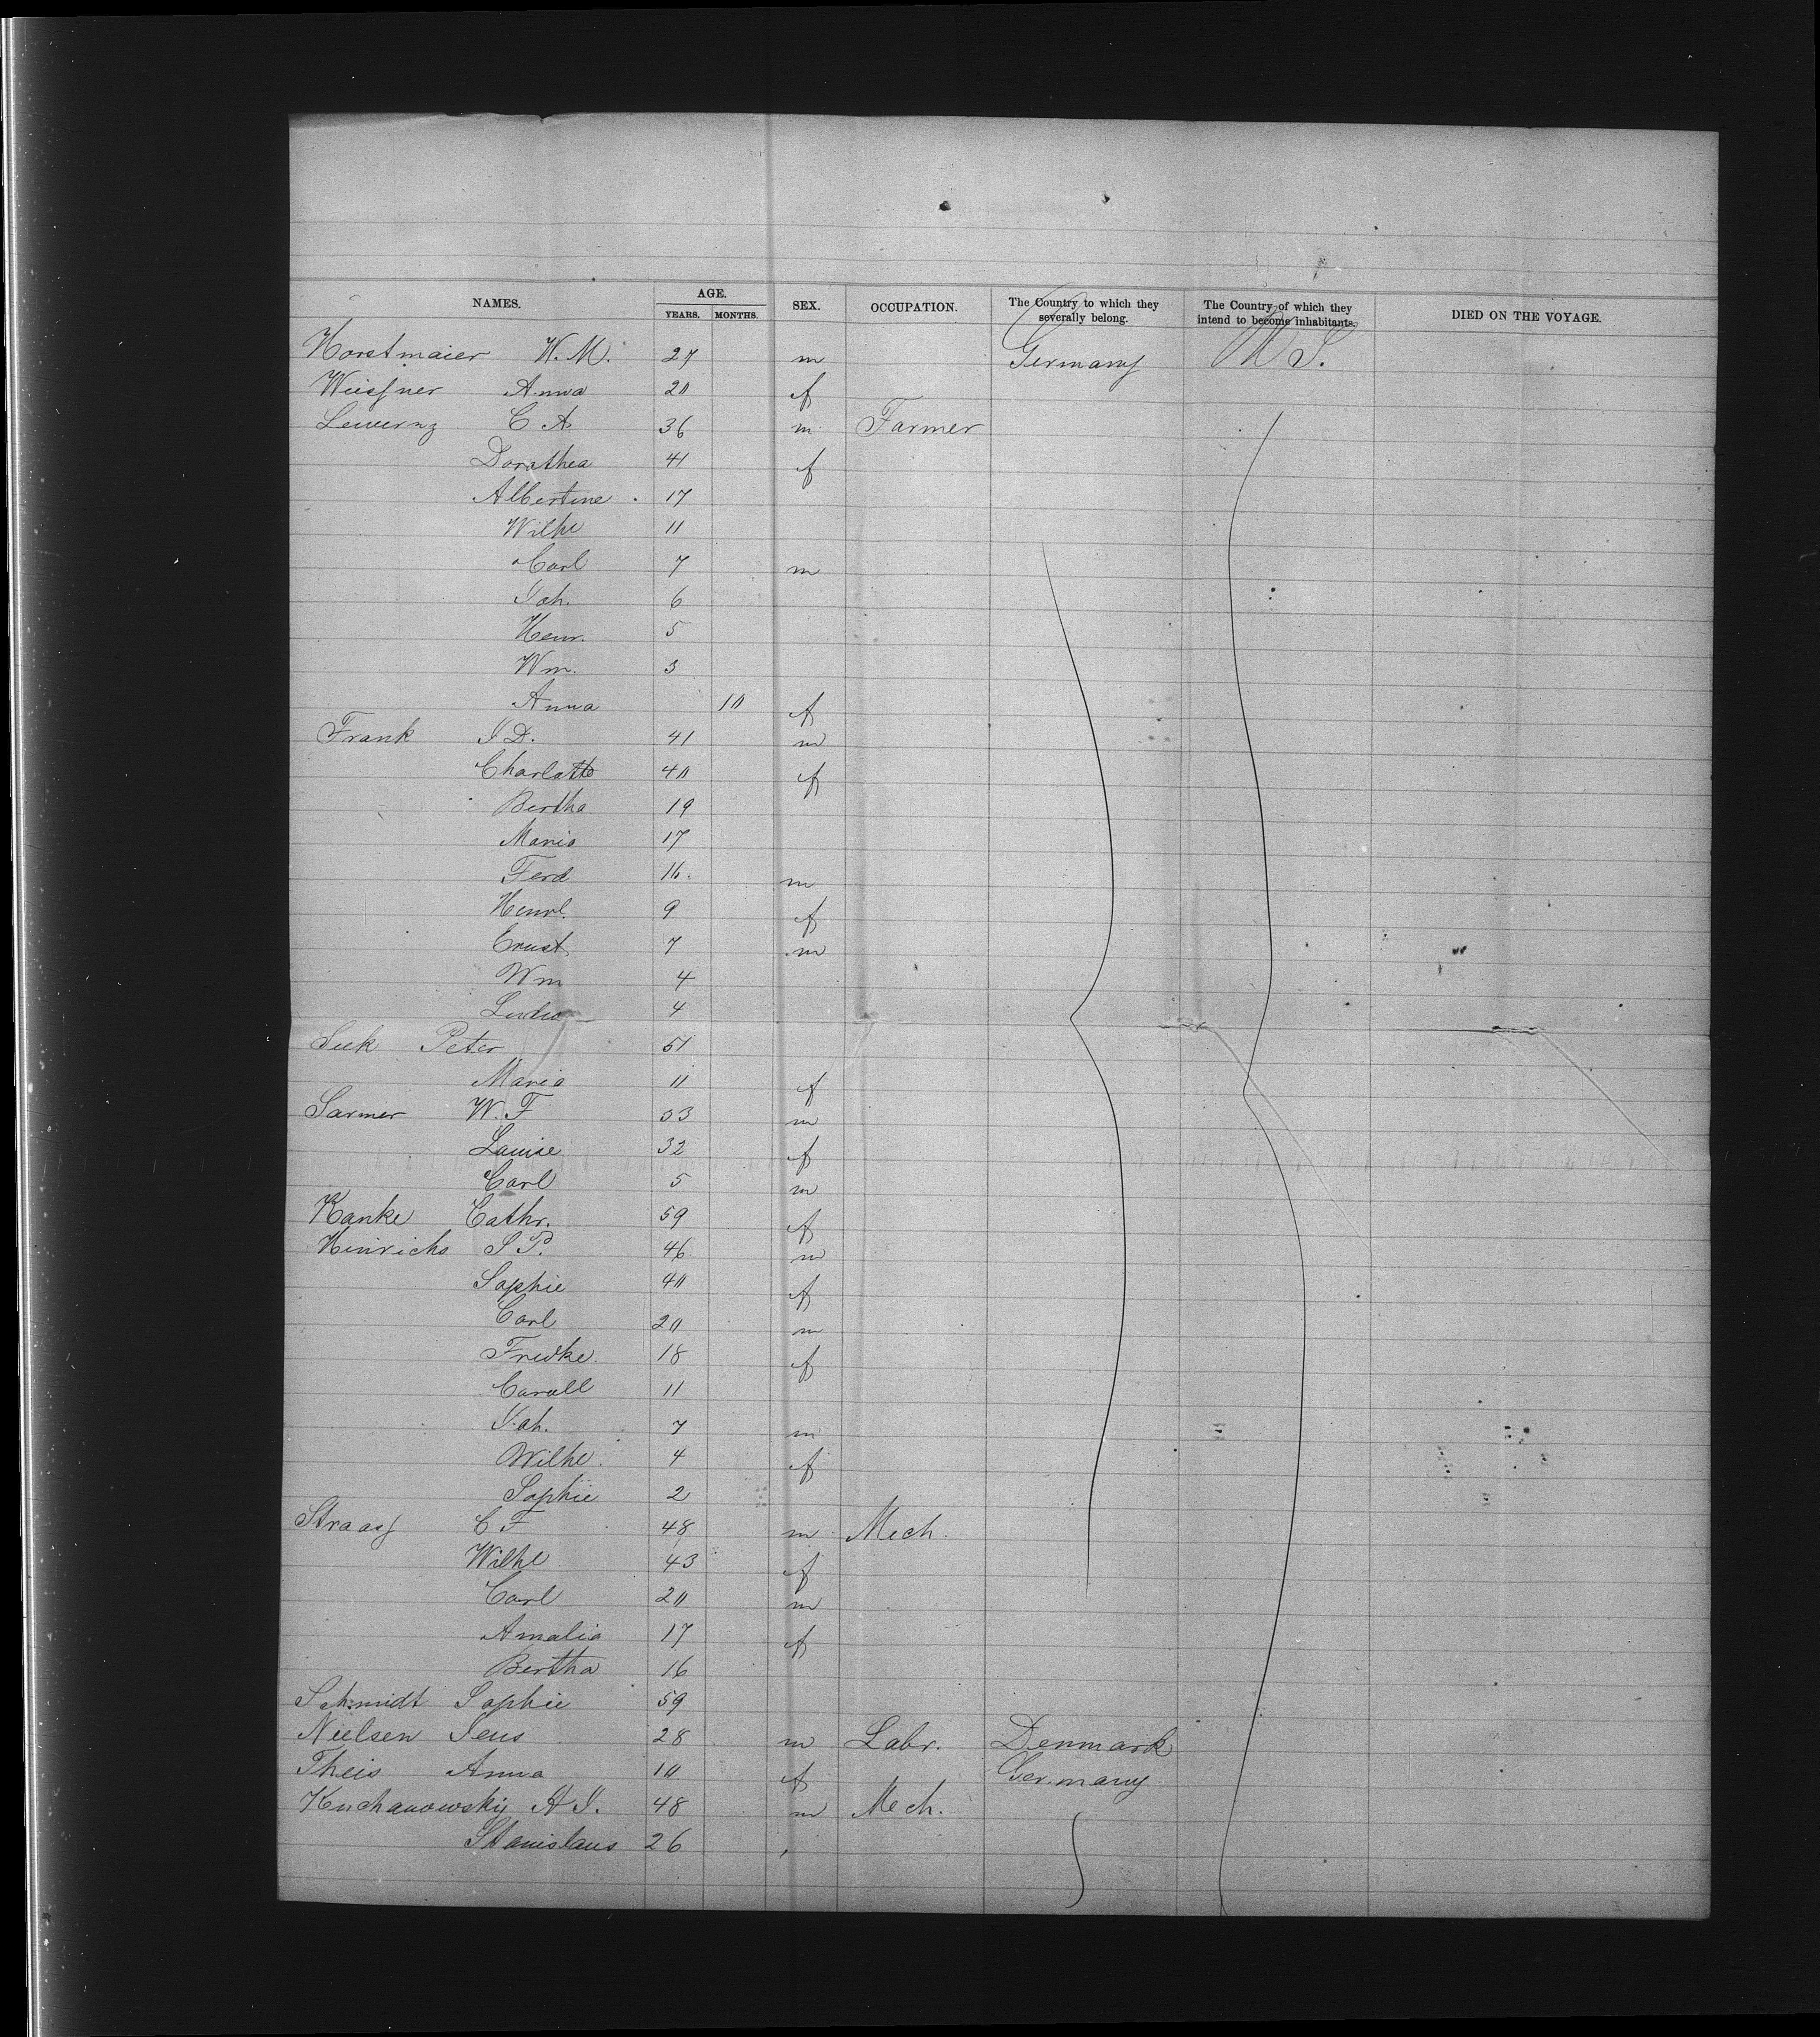 NAMES. AGE. SEX. OCCUPATION. The Country to which they severally belong. The Country of which they intend to become inhabitants. DIED ON THE VOYAGE.
YEARS. MONTHS.
Horstmaier W. M. 27 m Germany U S.
Wiessner Anna 20 f
C A 36 m Farmer
Dorathea 41 f
Albertine 17
Wilhe 11
Carl 7 m
Joh. 6
Henr. 5
Wm. 3
Anna 10 f
Frank J D. 41 m
Charlotte 40 f
Bertha 19
Maria 17
Ferd 16. m
Henrl. 9 f
Ernst 7 m
Wm 4
Ludw 4
Peter 51
Maria 11 f
W. F 33 m
Louise 32 f
Carl 5 m
Kanke Cathr. 59 f
Hinrichs J P. 46 m
Sophie 40 f
Carl 20 m
Friedke. 18 f
Caroll 11
Joh. 7 m
Wilhe. 4 f
Sophie 2
Straass C F 48 m Mech.
Wilhe 43 f
Carl 20 m
Amalia 17 f
Bertha 16
Schmidt Sophie 59
Nielsen Jens 28 m Labr. Denmark
Theis Anna 10 f Germany
Kuchanowsky A J. 48 m Mech.
Stanislaus 26